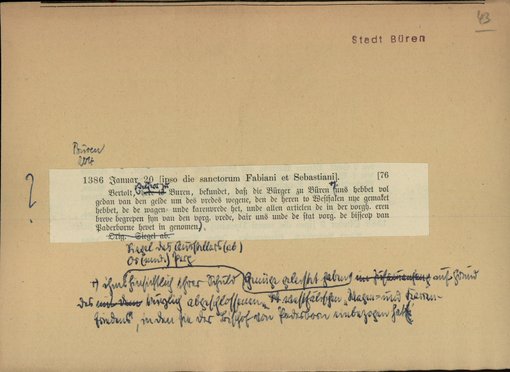 43
Stadt Büren
Büren
204
1386 Januar 20 [ipso die sanctorum Fabiani et Sebastiani]. [76
?
Bertolt, here to Buren, bekundet, daß die Bürger zu Büren "uns hebbet vol
gedan van den gelde um des vredes wegene, den de heren to Westfalen nye gemaket
hebbet, de de wagen- unde karenvrede het, unde allen articlen de in der vorgh. eren
breve begrepen syn van den vorg. vrede, dair uns unde de stat vorg. de bisscop van
Paderborne hevet in genomen.
Orig. Siegel ab.
Siegel des Ausstellers (ab)
Or(iginal) Perg
+) ihm hinsichtlich ihrer Schuld Genüge geleistet haben auf Grund
des kürzlich abgeschlossenen westfälischen "Wagen- und Karren-
friedens", in den sie der Bischof von Paderborn einbezogen hat.